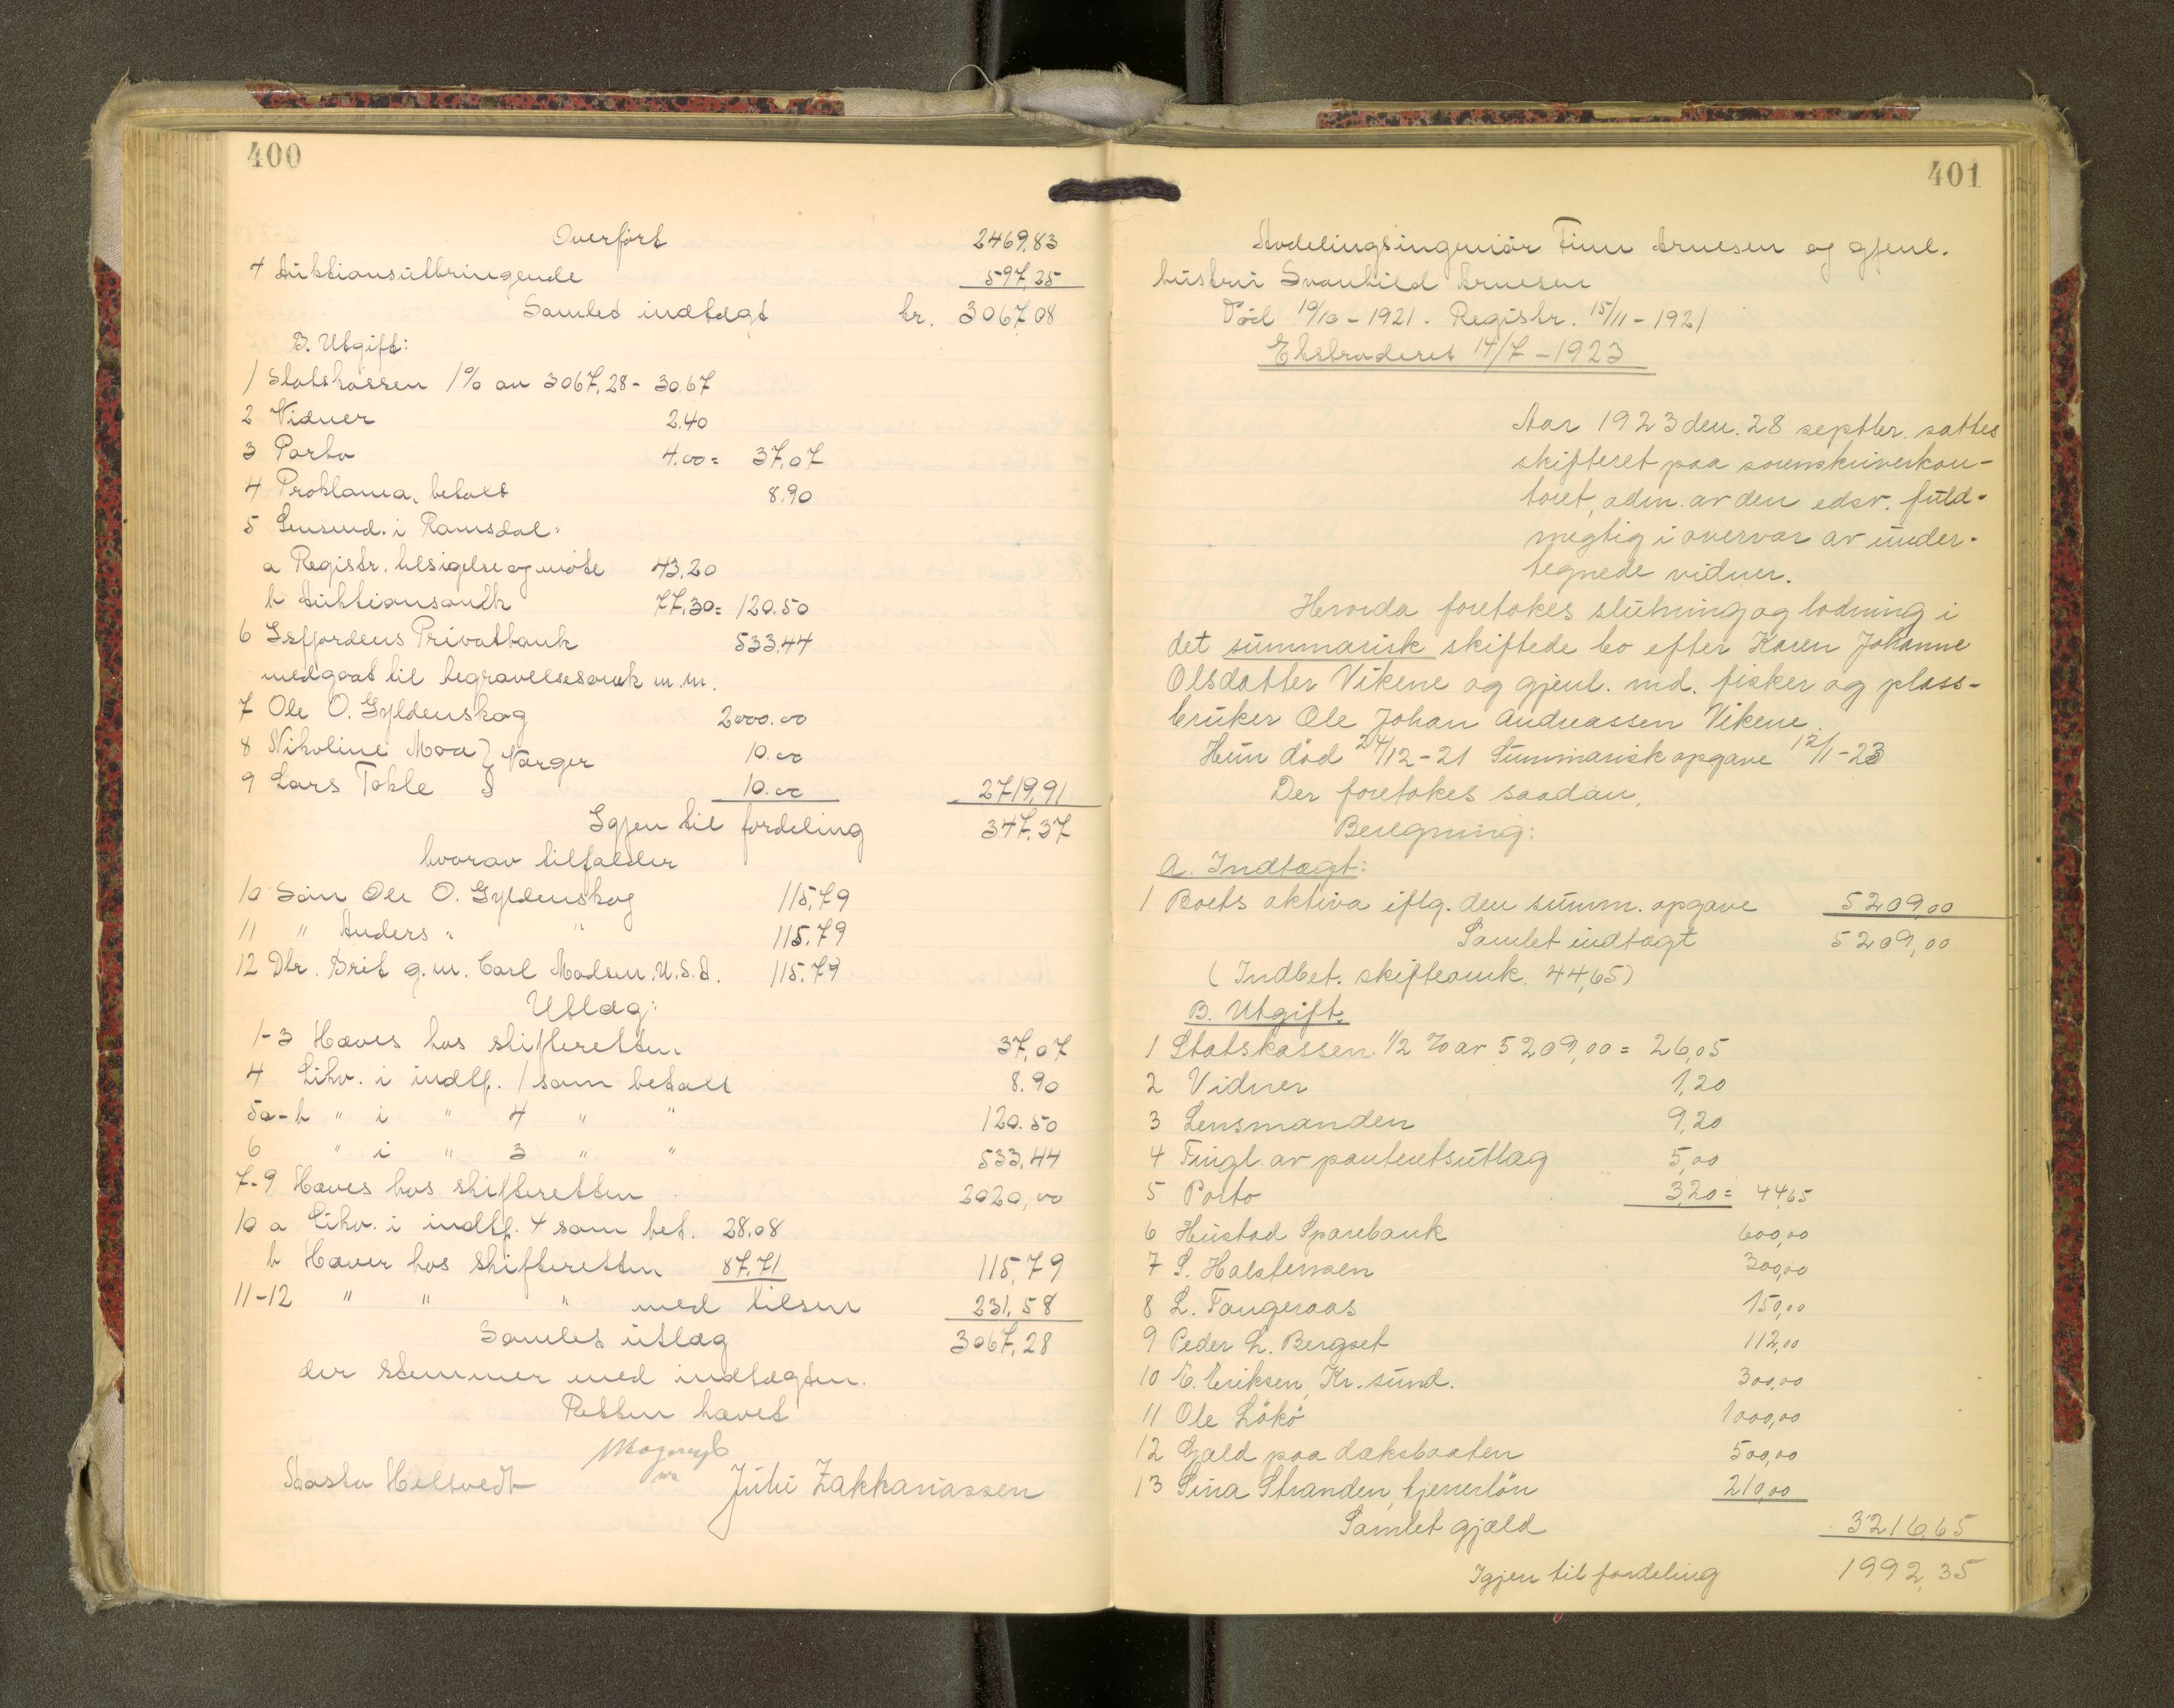 400
Overført 2469,83
4 Auktionsutbringende 597,25
Samlet indtægt kr. 3067,08
B. Utgift:
1 Statskassen 1% av 3067,28 - 30.67
2 Vidner 2.40
3 Porto 4.00 = 37,07
4 Proklama, betalt 8.90
5 Lensmd. i Romsdal:
a Registr. besigtelse og møte 43,20
b Auktionsomk 77,30 = 120.50
6 Isfjordens Privatbank 533,44
medgaat til begravelsesomk m.m.
7 Ole O. Gyldenskog 2000.00
8 Nikoline Moa } Værger 10.00
9 Lars Tokle } 10.00 2719,91
Igjen til fordeling 347,37
hvorav tilfalder
10 Søn Ole O. Gyldenskog 115,79
11 " Anders " " 115,79
12 Dtr. Brit g.m. Carl Madsen U.S.A. 115,79
Utlæg:
1-3 Hæves hos skifteretten 37,07
4 Likv. i indtf. 1 som betalt 8.90
5a-b " i " 4 " " 120.50
6 " i " 3 " " 533,44
7-9 Hæves hos skifteretten 2020,00
10 a Likv. i indtf. 4 som bet. 28.08
b Hæver hos skifteretten 87,71 115,79
11-12 " " " med tilsm 231,58
Samlet utlæg 3067,28
der stemmer med indtægten.
Retten hævet
Aasta Heltvedt Juli Zakkariassen
401
Avdelingsingeniør Finn Arnesen og gjenl.
hustru Svanhild Arnesen
Død 19/10 - 1921. Registr. 15/11 - 1921
Ekstraderet 14/7 - 1923
Aar 1923 den 28 septbr. sattes
skifteret paa sorenskriverkon-
toret, adm. av den edsv. fuld-
megtig i overvær av under-
tegnede vidner.
Hvorda foretokes slutning og lodning i
det summarisk skiftede bo efter Karen Johanne
Olsdatter Vikene og gjenl. md. fisker og plass-
bruker Ole Johan Andreassen Vikene.
Hun død 24/12-21 Summarisk opgave 12/1-23
Der foretokes saadan,
Beregning:
A. Indtægt:
1 Boets aktiva iflg. den summ. opgave 5209,00
Samlet indtægt 5209,00
(Indbet. skifteomk. 44,65)
B. Utgift:
1 Statskassen 1/2 % av 5209,00 = 26,05
2 Vidner 1,20
3 Lensmanden 9,20
4 Tingl. av panteretsutlæg 5,00
5 Porto 3,20 = 44,65
6 Hustad Sparebank 600,00
7 S. Halstensen 300,00
8 L. Tangeraas 150,00
9 Peder L. Bergset 112,00
10 E. Eriksen, Kr. sund. 300,00
11 Ole Løkø 1000,00
12 Gjæld paa daksbaaten 500,00
13 Sina Stranden, tjenerløn 210,00
Samlet gjæld 3216,65
Igjen til fordeling 1992,35